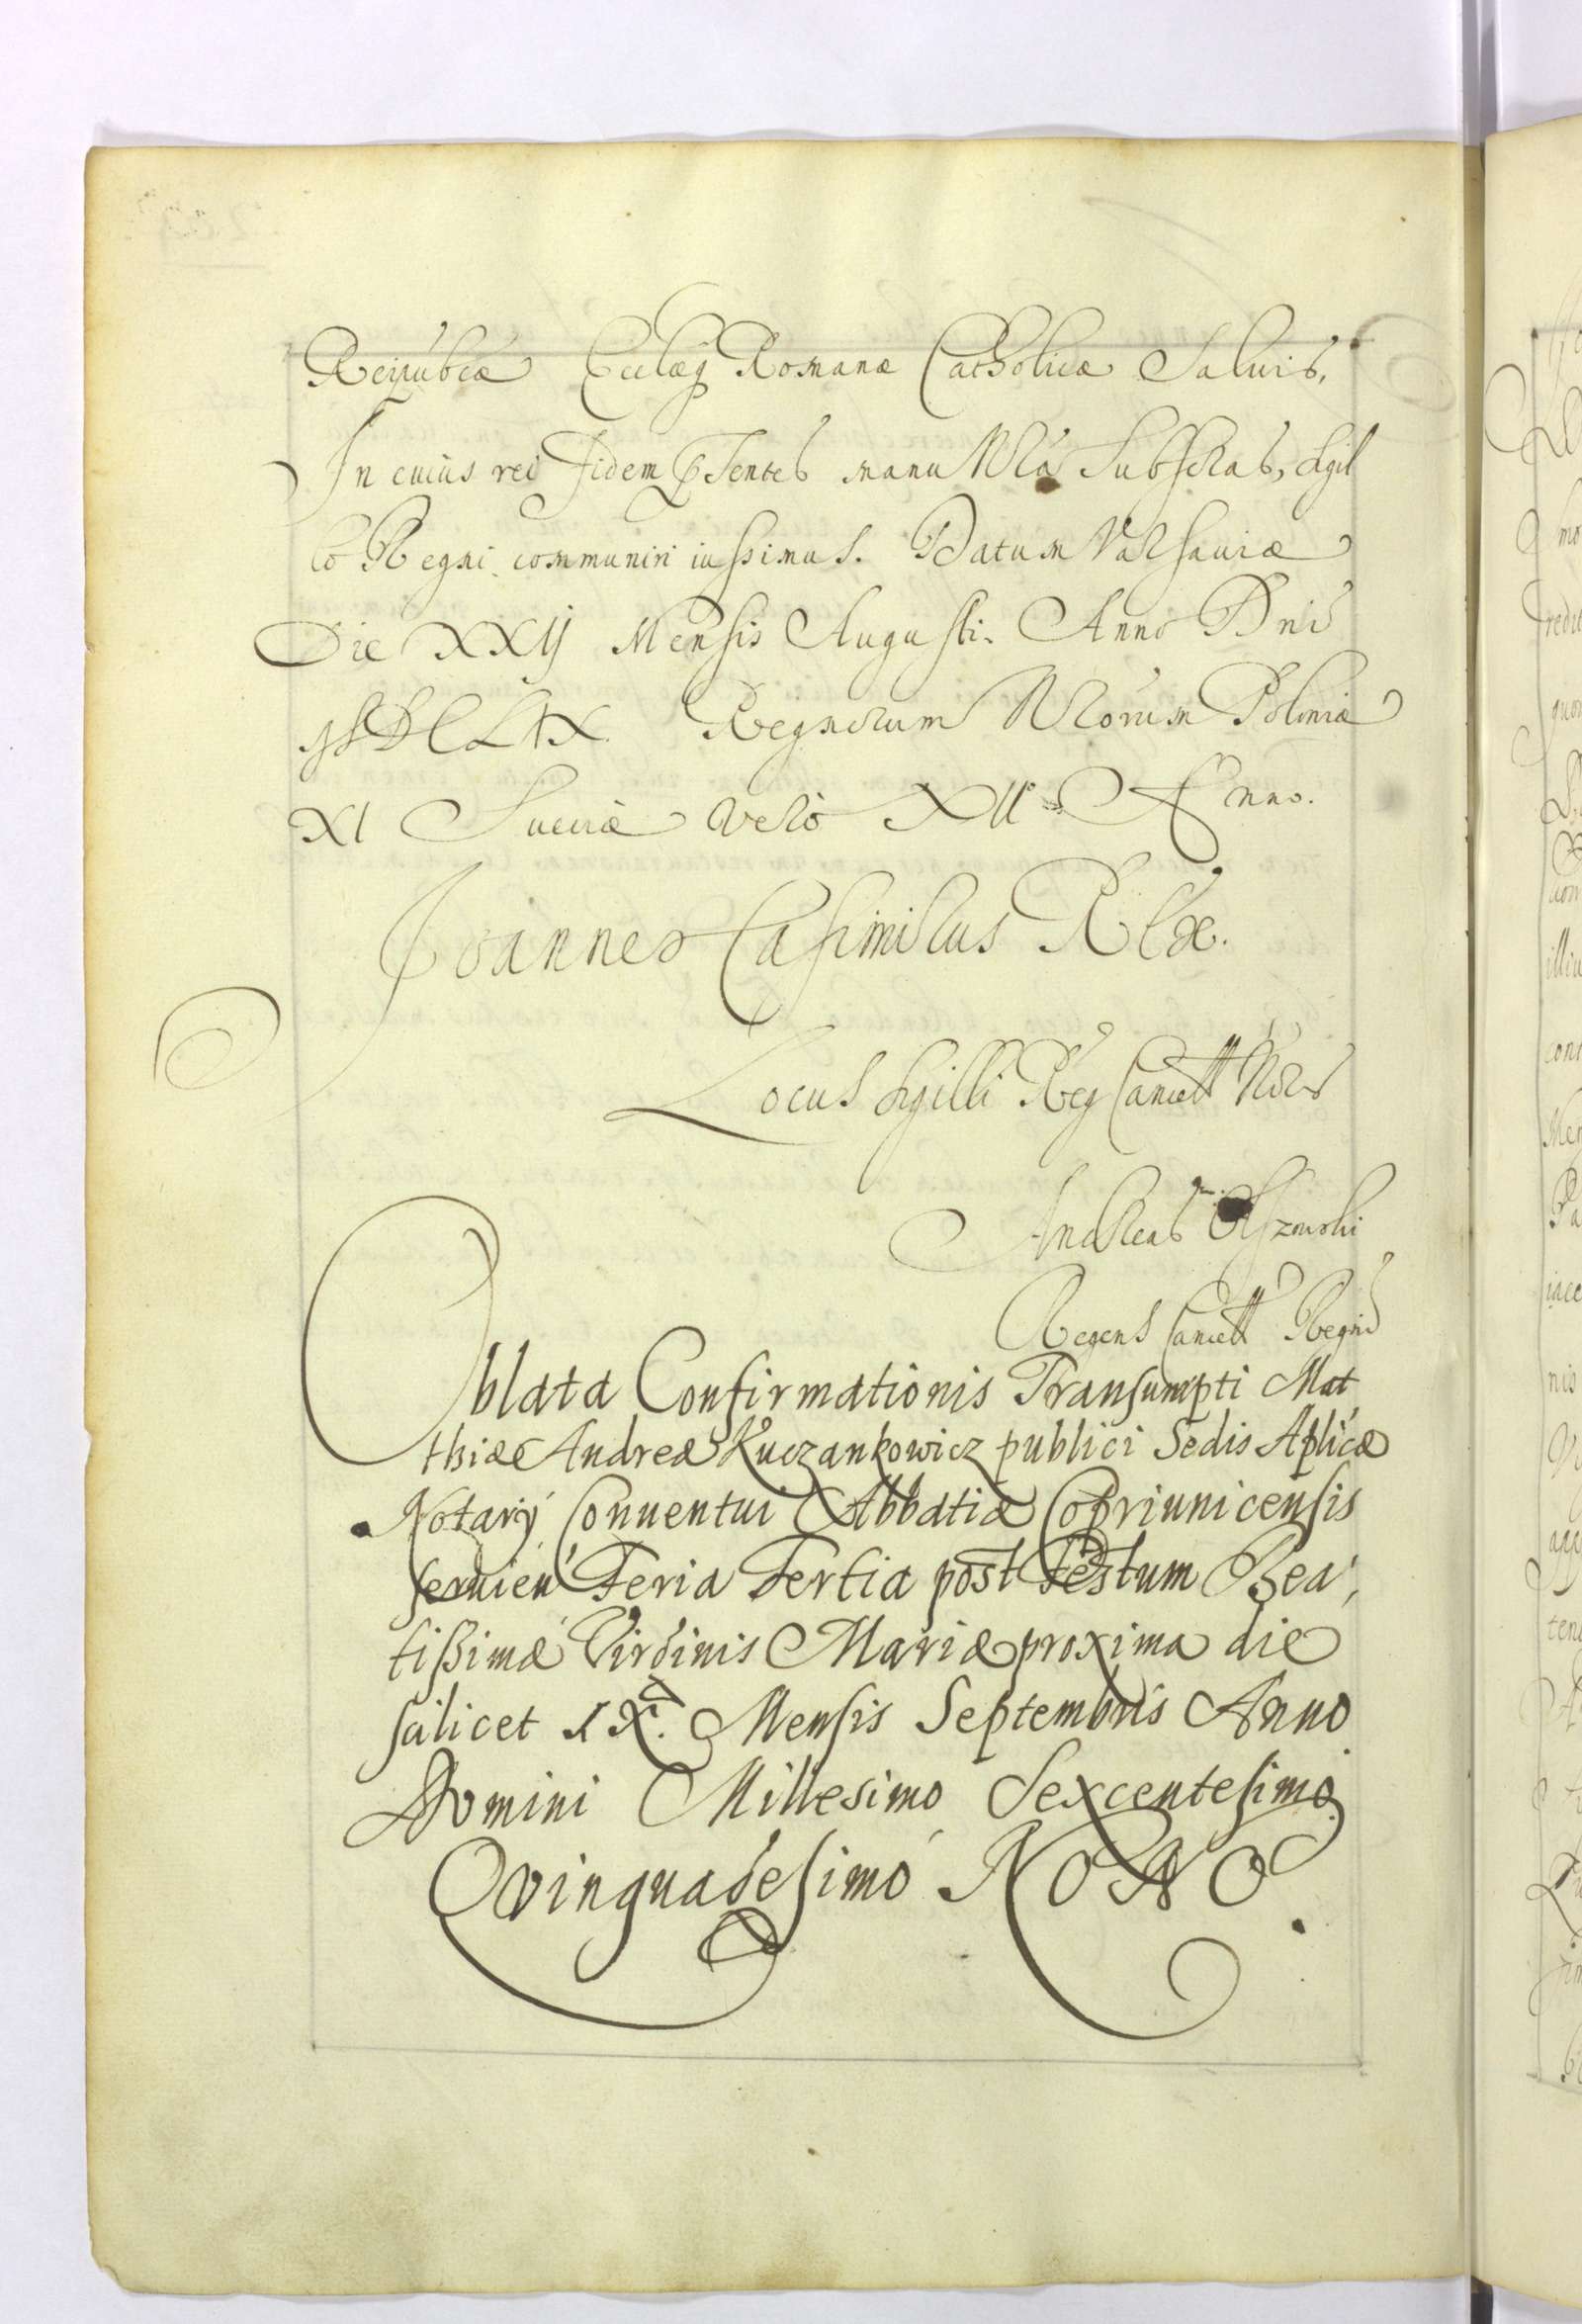 Reipubcæ Ecclæq Romanæ Catholicæ Salvis,
In cuius rei fidem pntes manu Nra Subscrtas, Sigil
lo Regni communiri iussimus. Datum Varsaviæ
Die XXII Mensis Augusti. Anno Dni
MDCLIX. Regnorum Nrorum Poloniæ
XI Sueciæ vero XII Anno.
Joannes Casimirus Rex.
Locus Sigilli Reg Cancell
Andreas Olszowski
Regens Cancell Regni
Oblata Confirmationis Transumpti Mat
thiæ Andreæ Kuczankowicz publici Sedis Aplicæ
Notarij Conuentui Abbatiæ Copriunicensis
seruien Feria Tertia post Festum Bea,
tissimæ Virginis Mariæ proxima die
scilicet IX. Mensis Septembris Anno
Domini Millesimo Sexcentesimo
Qvinquagesimo NONO.